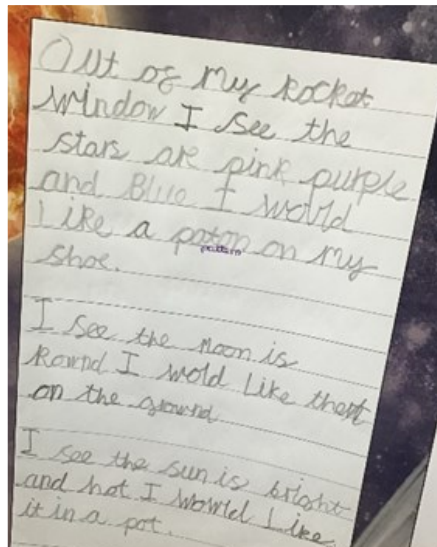 Out of my Rocket
window I see the
stars are pink purple
and Blue I would
Like a paton on my
pattern
shoe.
I see the Moon is
Rownd I wold Like that
on the grownd
I see the sun is bright
and hot I wowld Like
it in a pot.